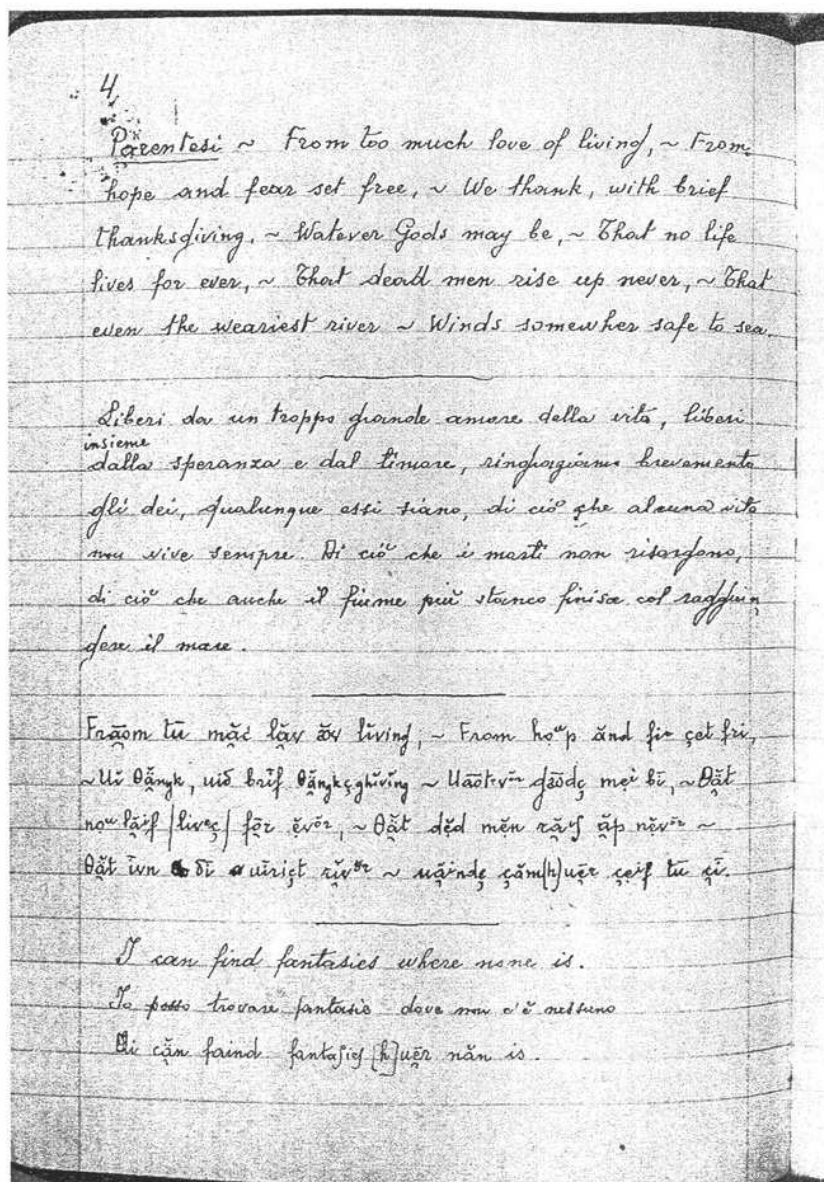 4
Parentesi ~ From too much love of living, ~ From
hope and fear set free, ~ We thank, with brief
thanksgiving, ~ Watever Gods may be, ~ That no life
lives for ever, ~ That dead men rise up never, ~ That
even the weariest river ~ Winds somewher safe to sea.
Liberi da un troppo grande amore della vita, liberi
insieme
dalla speranza e dal timore, ringhagiamo brevemente
gli dei, qualunque essi siano, di ciò che alcuna vita
non vive sempre. Di ciò che i morti non risorgono,
di ciò che anche il fiume più stanco finisce col raggiun
gere il mare.
Frāom tū măc lăv ăv lĭving, ~ From hoᵘp ănd fiʳ çet fri,
~ Uĭ θăngk, uiδ brĭf θăngkçghĭvĭng ~ Uāotevŏʳ gāodç meⁱ bī, ~ θăt
noᵘ lăⁱf [livᵉç] fōr ĕvŏʳ, ~ θăt dĕd mĕn răⁱʃ ăp nĕvŏʳ ~
θăt īvn δī uīriçt rĭvŏʳ ~ uăⁱndç çăm[h]uēr çeif tū çī.
I can find fantasies where none is.
Io posso trovare fantasie dove non c'è nessuno
Ai căn faind fantaʃieʃ [h]uēr năn is.